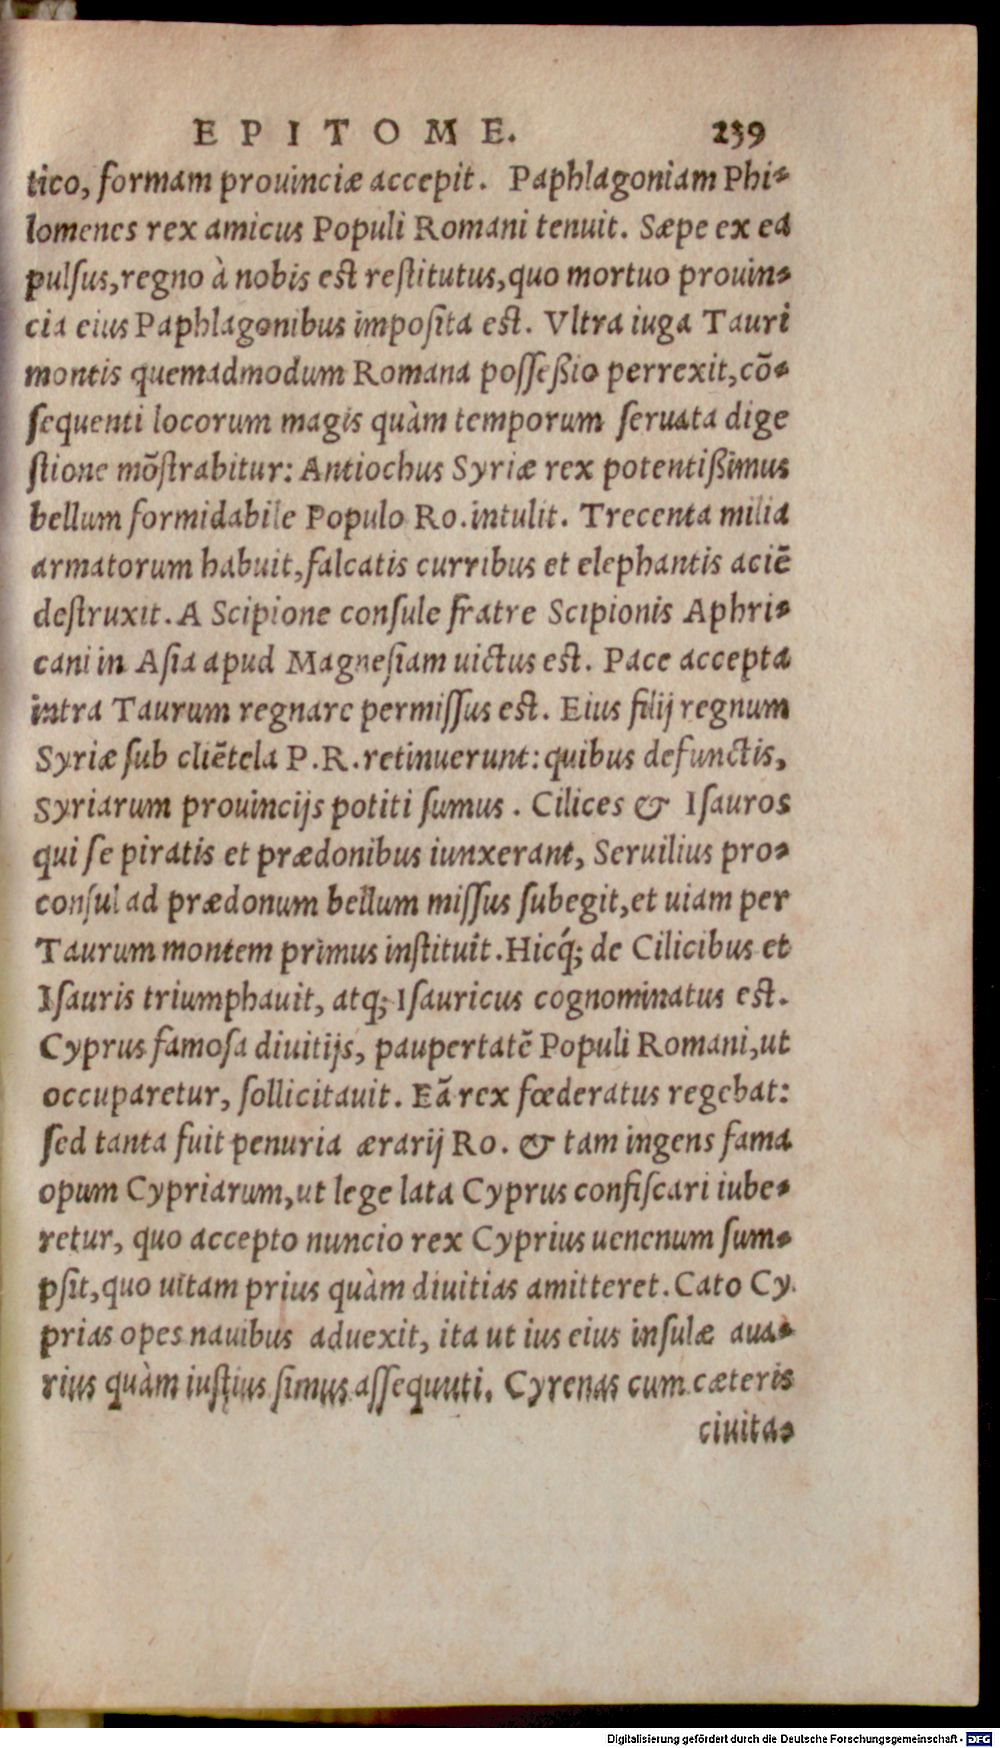 EPITOME. 239
tico, formam prouinciæ accepit. Paphlagoniam Phi-
lomenes rex amicus Populi Romani tenuit. Sæpe ex ea
pulsus, regno à nobis est restitutus, quo mortuo prouin-
cia eius Paphlagonibus imposita est. Vltra iuga Tauri
montis quemadmodum Romana possessio perrexit, cõ-
sequenti locorum magis quàm temporum seruata dige
stione mõstrabitur: Antiochus Syriæ rex potentißimus
bellum formidabile Populo Ro. intulit. Trecenta milia
armatorum habuit, falcatis curribus et elephantis aciē
destruxit. A Scipione consule fratre Scipionis Aphri-
cani in Asia apud Magnesiam uictus est. Pace accepta
intra Taurum regnare permissus est. Eius filij regnum
Syriæ sub cliētela P. R. retinuerunt: quibus defunctis,
Syriarum prouincijs potiti sumus. Cilices & Isauros
qui se piratis et prædonibus iunxerant, Seruilius pro-
consul ad prædonum bellum missus subegit, et uiam per
Taurum montem primus instituit. Hicq́; de Cilicibus et
Isauris triumphauit, atq; Isauricus cognominatus est.
Cyprus famosa diuitijs, paupertatē Populi Romani, ut
occuparetur, sollicitauit. Eã rex fœderatus regebat:
sed tanta fuit penuria ærarij Ro. & tam ingens fama
opum Cypriarum, ut lege lata Cyprus confiscari iube-
retur, quo accepto nuncio rex Cyprius uenenum sum-
psit, quo uitam prius quàm diuitias amitteret. Cato Cy-
prias opes nauibus aduexit, ita ut ius eius insulæ aua-
rius quàm iustius simus assequuti. Cyrenas cum cæteris
ciuita-
Digitalisierung gefördert durch die Deutsche Forschungsgemeinschaft - DFG